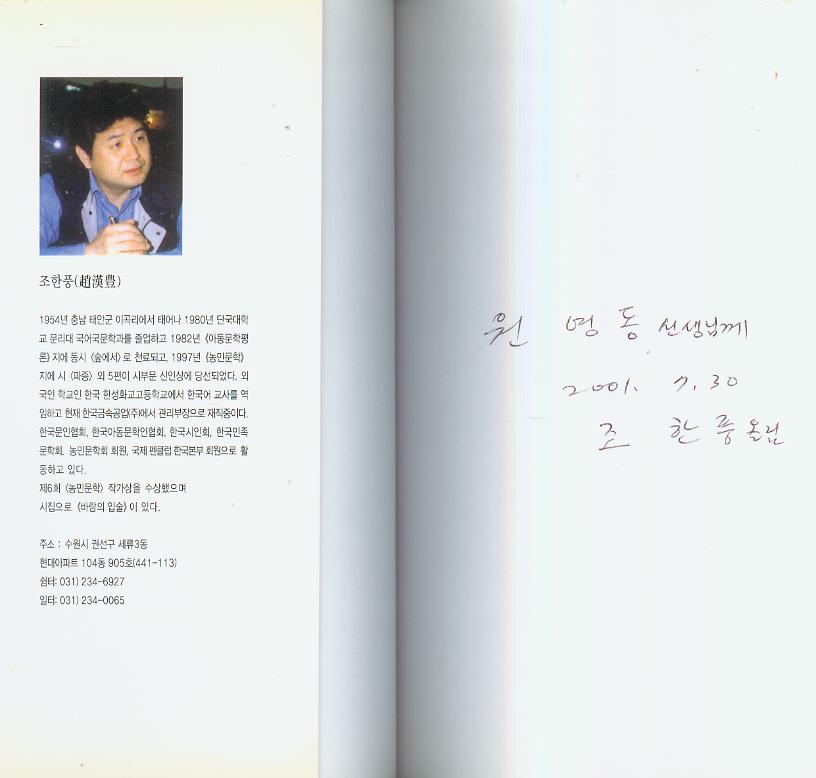 조한풍(趙漢豊)
1954년 충남 태안군 이곡리에서 태어나 1980년 단국대학
교 문리대 국어국문학과를 졸업하고 1982년 〈아동문학평
론〉지에 동시 〈숲에서〉로 천료되고, 1997년 〈농민문학〉
지에 시 〈파종〉 외 5편이 시부문 신인상에 당선되었다. 외
국인 학교인 한국 한성화교고등학교에서 한국어 교사를 역
임하고 현재 한국금속공업(주)에서 관리부장으로 재직중이다.
한국문인협회, 한국아동문학인협회, 한국시인회, 한국민족
문학회, 농민문학회 회원, 국제 펜클럽 한국본부 회원으로 활
동하고 있다.
제6회 〈농민문학〉 작가상을 수상했으며
시집으로 《바람의 입술》이 있다.
주소 : 수원시 권선구 세류3동
현대아파트 104동 905호(441-113)
쉼터: 031) 234-6927
일터: 031) 234-0065
원 영 동 선생님께
2001. 7. 30
조 한 풍 올림